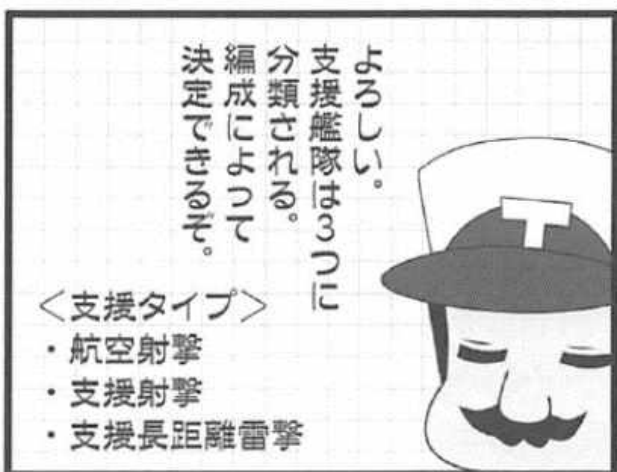 よろしい。
支援艦隊は3つに
分類される。
編成によって
決定できるぞ。
T
<支援タイプ>
・航空射撃
・支援射撃
・支援長距離雷撃